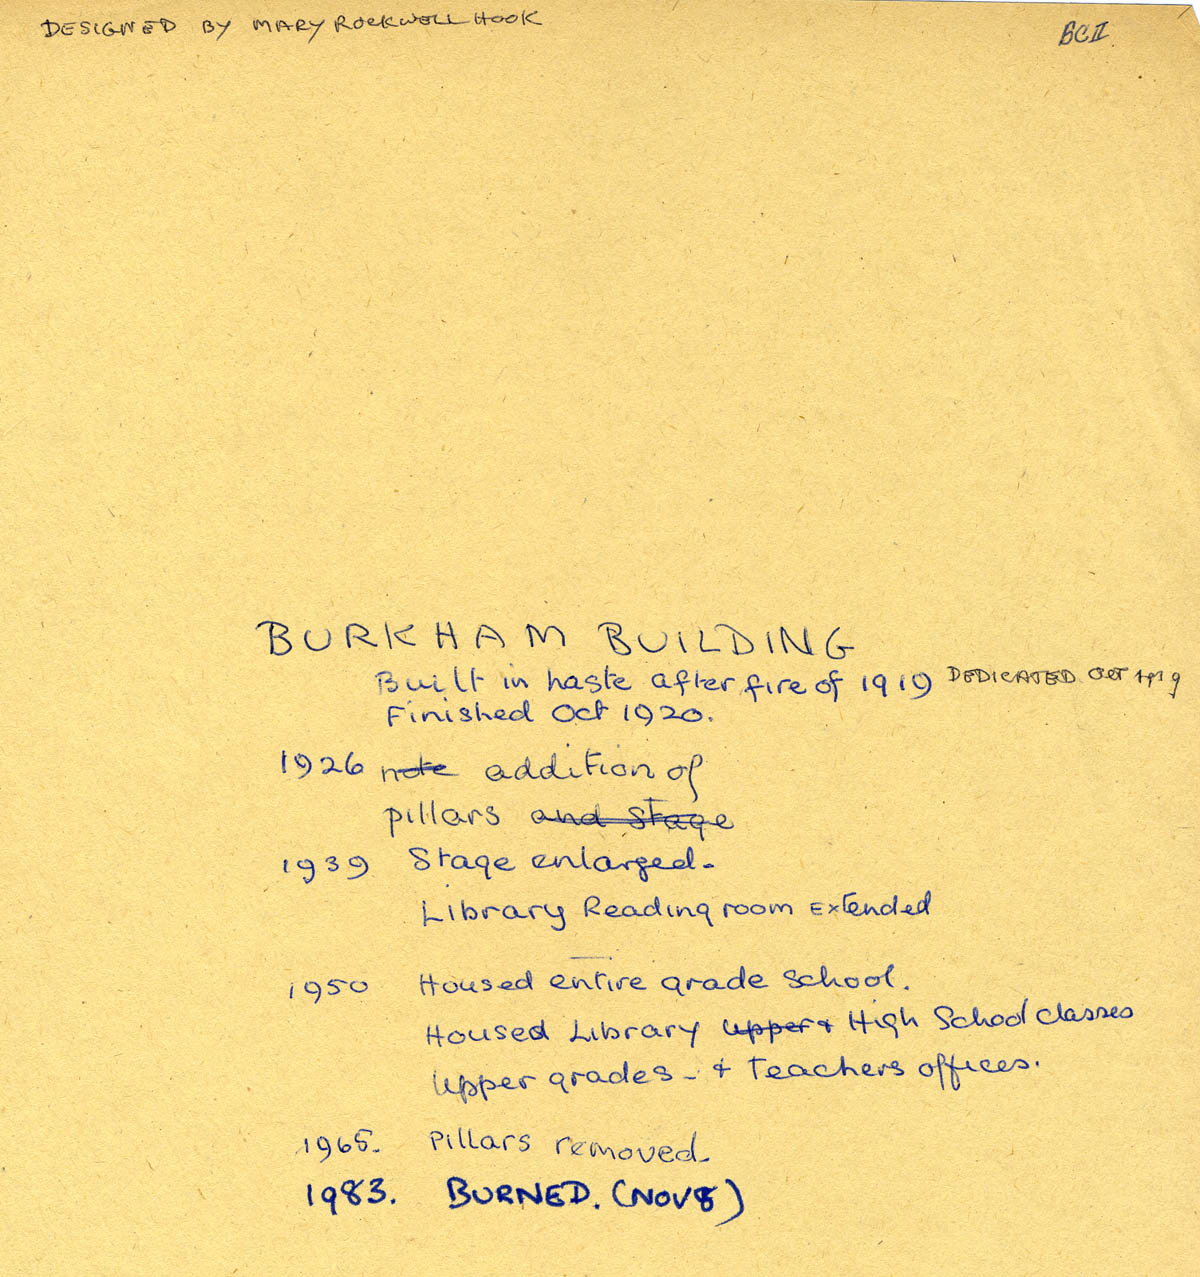 DESIGNED BY MARY ROCKWELL HOOK
BCII
BURKHAM BUILDING
Built in haste after fire of 1919 DEDICATED Oct 1919
Finished Oct 1920.
1926 note addition of
pillars and stage
1939 Stage enlarged-
Library Reading room Extended
1950 Housed entire grade school.
Housed Library upper & High School classes
Upper grades - & Teachers offices.
1965. Pillars removed-
1983. BURNED. (NOV 8)